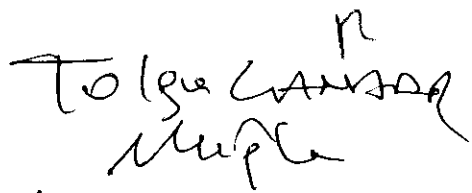 Tolga CANDAR
Muğla